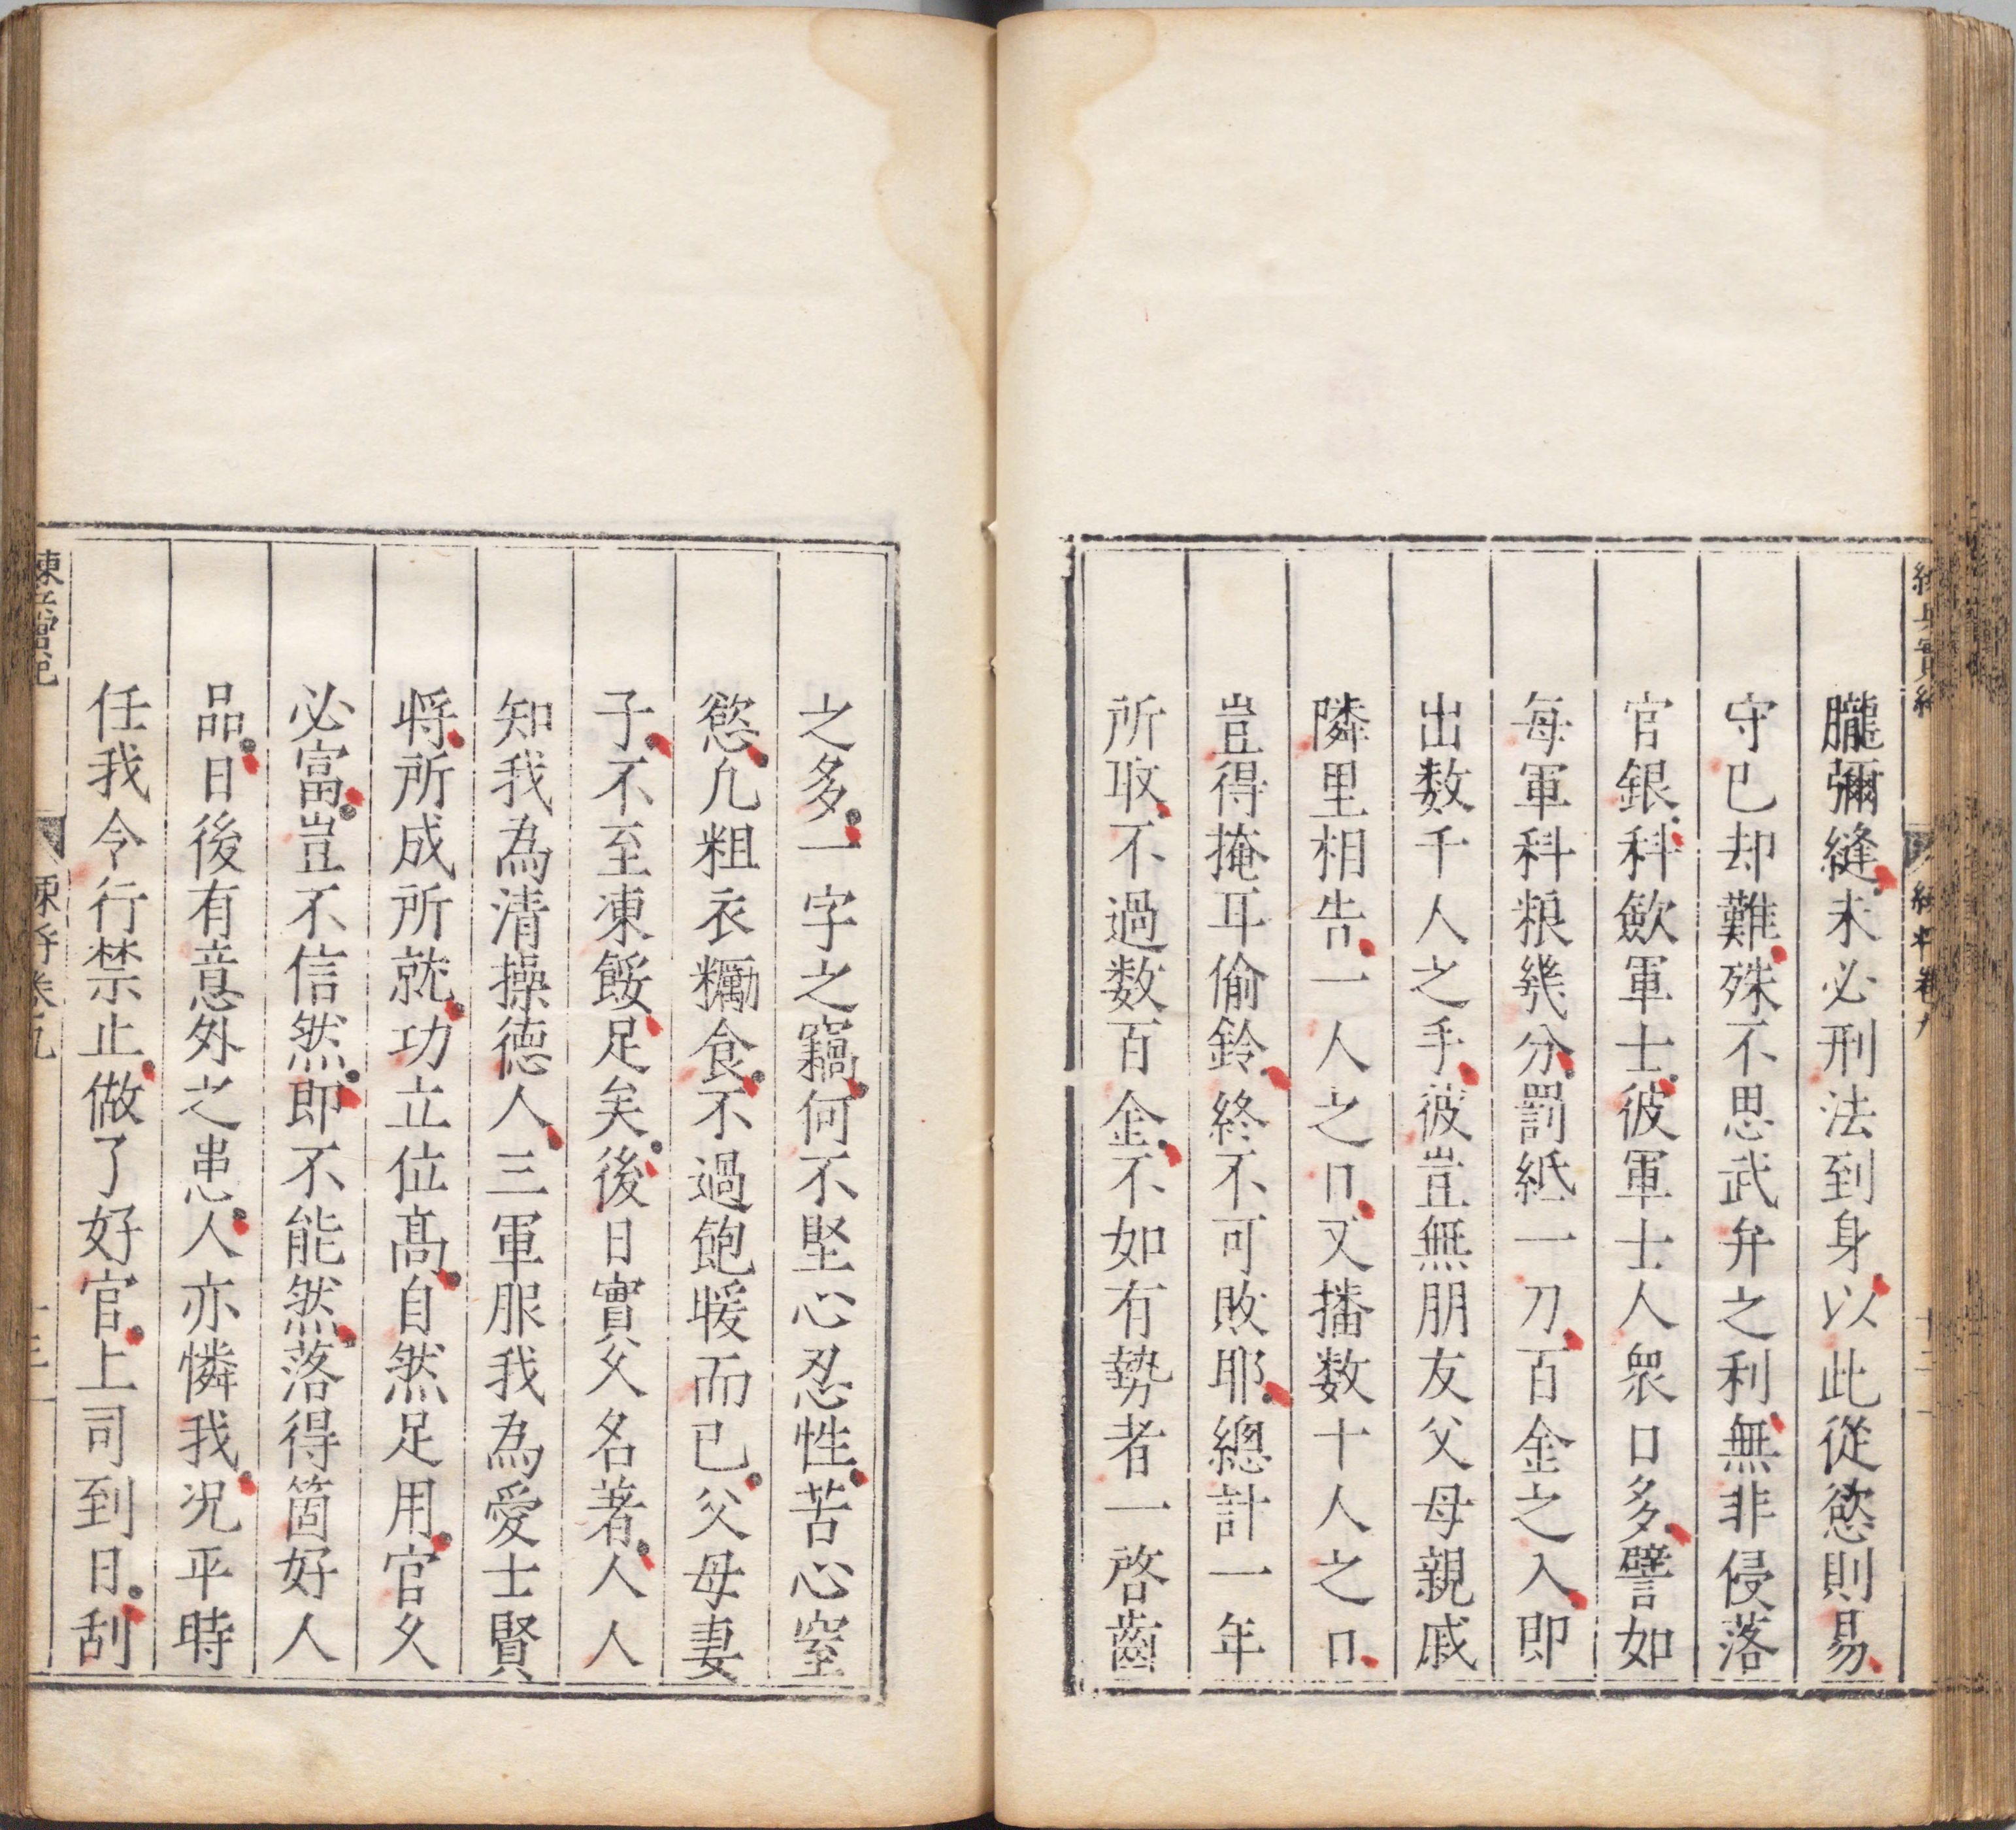 朧彌縫未必刑法到身以此從慾則易
守已却難殊不思武弁之利無非侵落
官銀科斂軍士彼軍士人衆口多譬如
每軍科粮幾分罰紙一刀百金之入即
出数千人之手彼豈無朋友父母親戚
隣里相告一人之口又播数十人之口
豈得掩耳偷鈴終不可敗耶總計一年
所取不過数百金不如有勢者一啓齒
之多一字之竊何不堅心忍性苦心窒
慾凢粗衣糲食不過飽暖而已父母妻
子不至凍餒足矣後日實久名著人人
知我為清操德人三軍服我為愛士賢
将所成所就功立位髙自然足用官久
必富豈不信然即不能然落得箇好人
品日後有意外之患人亦憐我况平時
任我令行禁止做了好官上司到日刮